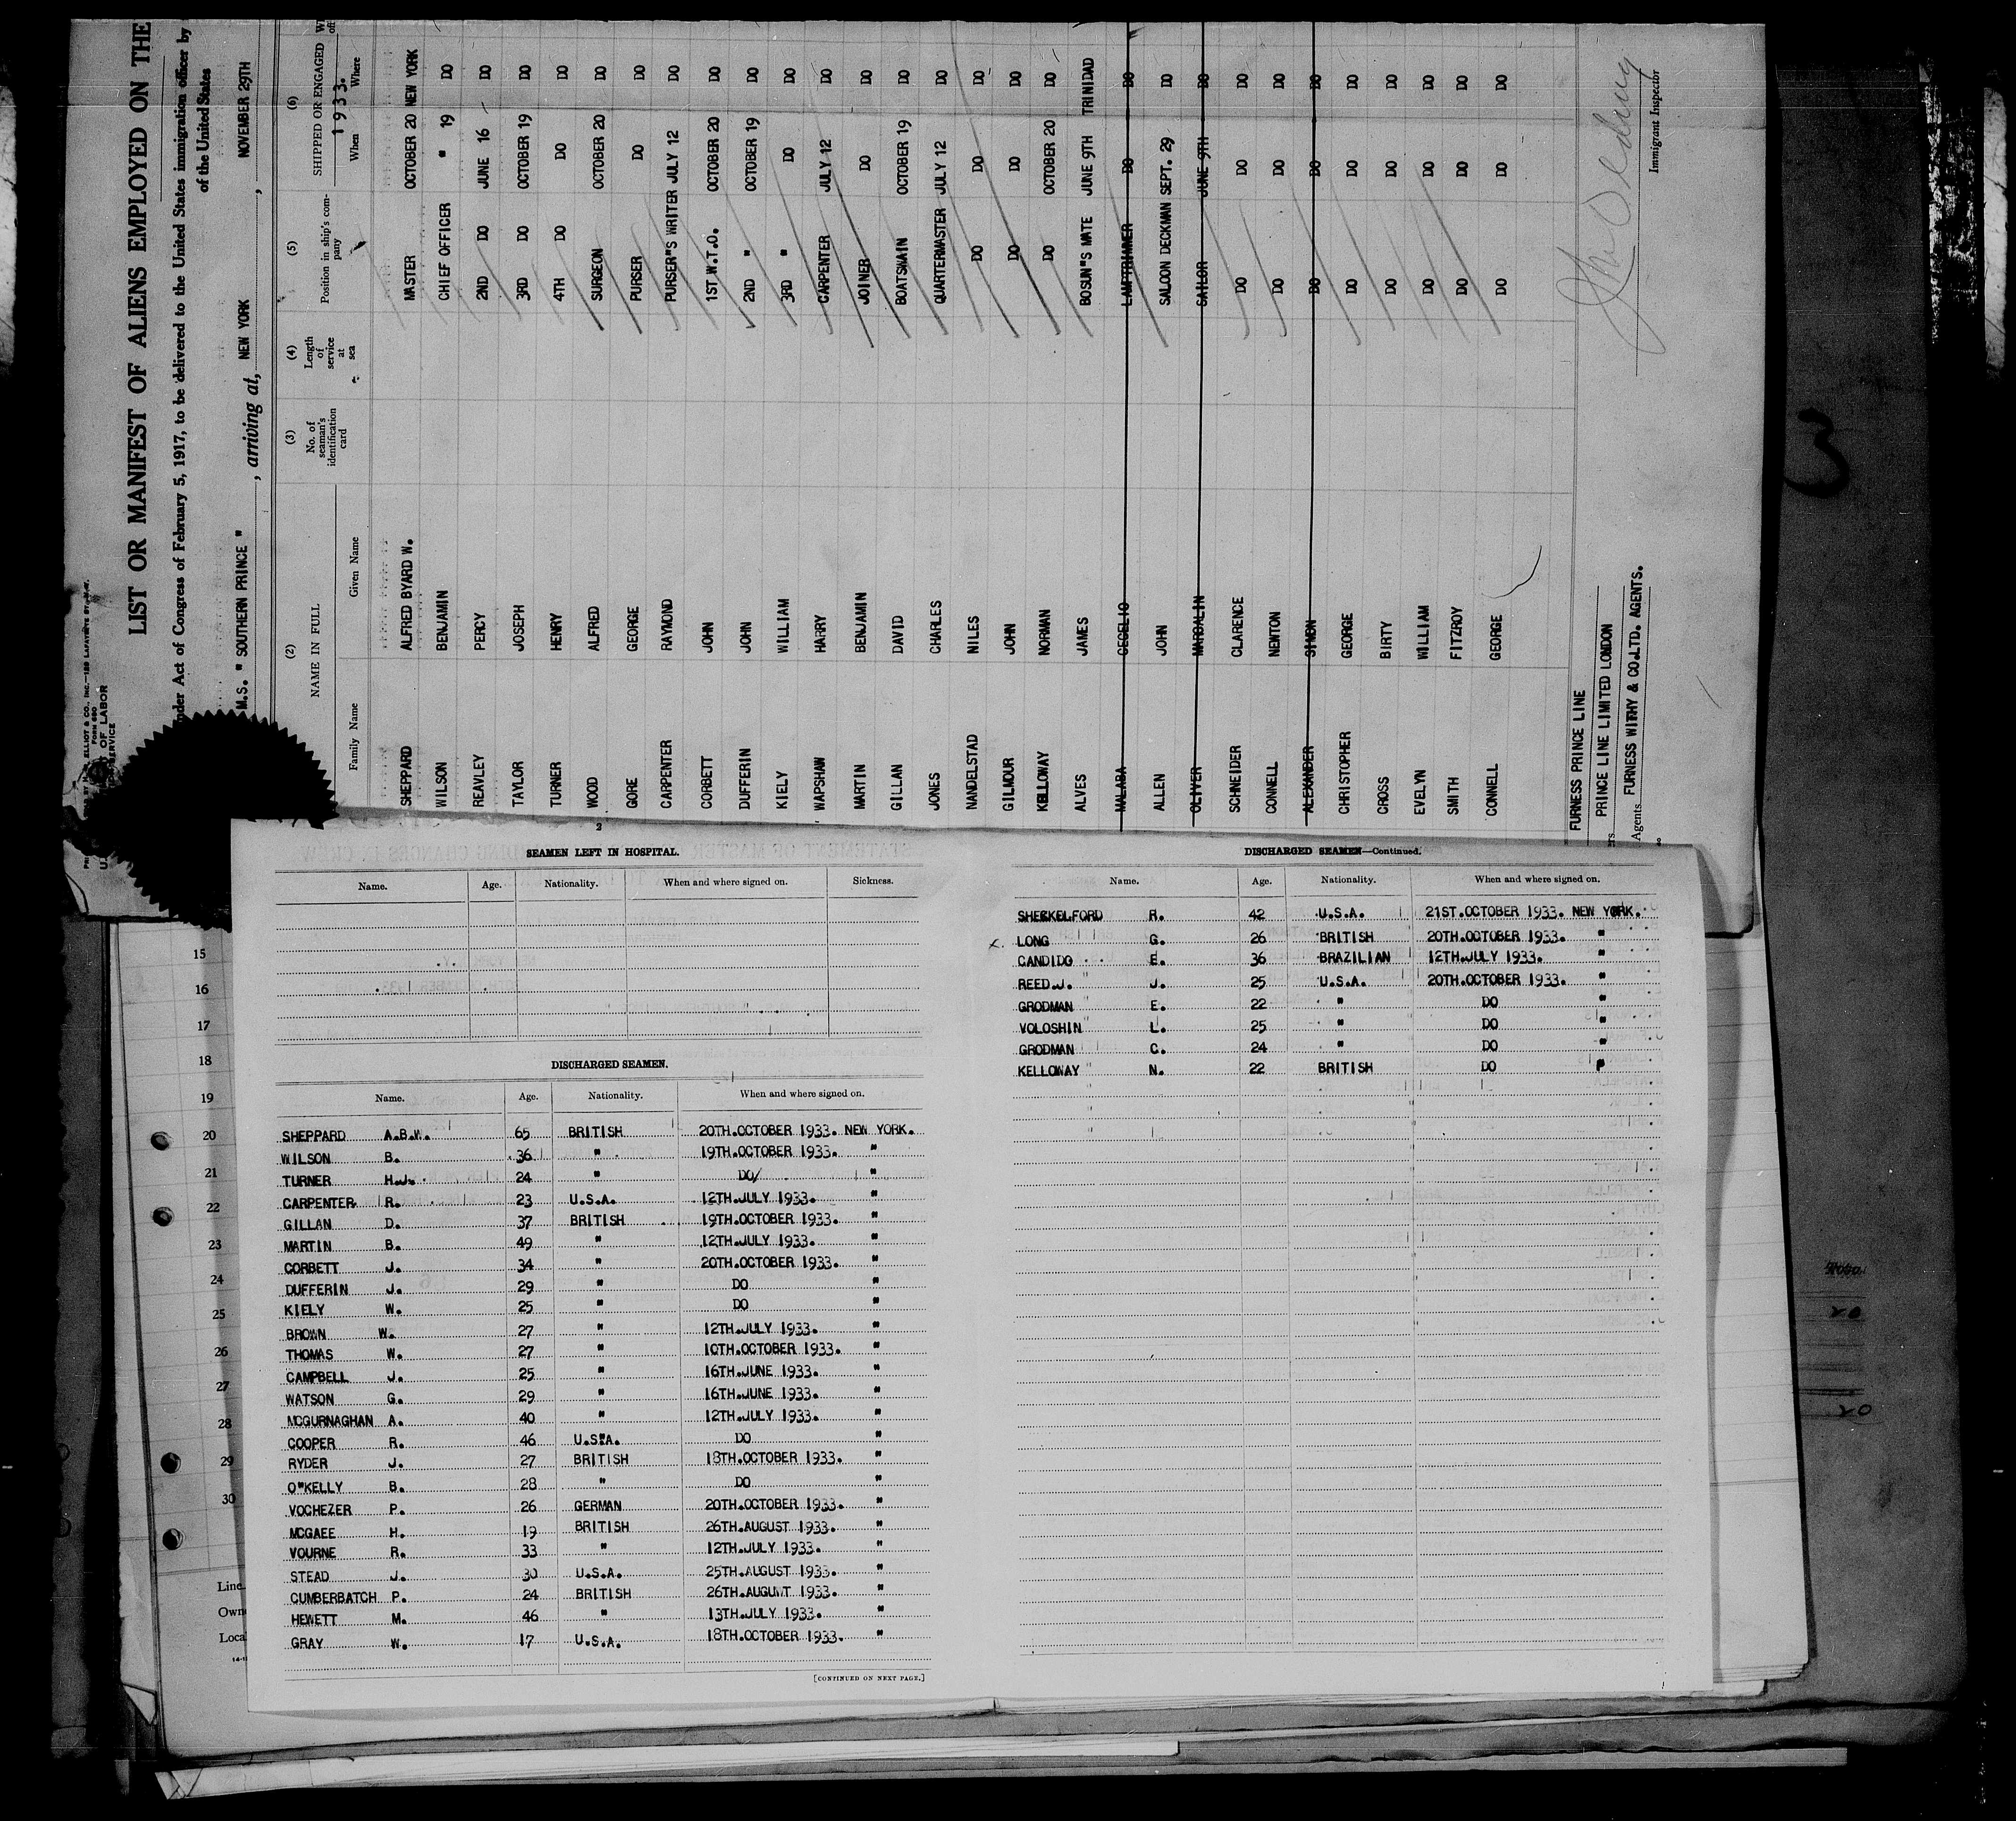 LIST OR MANIFEST OF ALIENS EMPLOYED ON THE
Under Act of Congress of February 5, 1917, to be delivered to the United States immigration officer by
of the United States
M.S. " SOUTHERN PRINCE " , arriving at, NEW YORK , NOVEMBER 29TH
(2) (3) (4) (5) (6)
NAME IN FULL No. of seaman's identification card Length of service at sea Position in ship's company SHIPPED OR ENGAGED
1933.
Family Name Given Name When Where
SHEPPARD ALFRED BYARD W. MASTER OCTOBER 20 NEW YORK
WILSON BENJAMIN CHIEF OFFICER " 19 DO
REAVLEY PERCY 2ND DO JUNE 16 DO
TAYLOR JOSEPH 3RD DO OCTOBER 19 DO
TURNER HENRY 4TH DO DO DO
WOOD ALFRED SURGEON OCTOBER 20 DO
GORE GEORGE PURSER DO DO
CARPENTER RAYMOND PURSER"S WRITER JULY 12 DO
CORBETT JOHN 1ST W.T.O. OCTOBER 20 DO
DUFFERIN JOHN 2ND " OCTOBER 19 DO
KIELY WILLIAM 3RD " DO DO
WAPSHAW HARRY CARPENTER JULY 12 DO
MARTIN BENJAMIN JOINER DO DO
GILLAN DAVID BOATSWAIN OCTOBER 19 DO
JONES CHARLES QUARTERMASTER JULY 12 DO
NANDELSTAD NILES DO DO DO
GILMOUR JOHN DO DO DO
KELLOWAY NORMAN DO OCTOBER 20 DO
ALVES JAMES BOSUN"S MATE JUNE 9TH TRINIDAD
MALABA CECELIO LAMPTRIMMER DO DO
ALLEN JOHN SALOON DECKMAN SEPT. 29 DO
OLIVER MARGALIN SAILOR JUNE 9TH DO
SCHNEIDER CLARENCE DO DO DO
CONNELL NEWTON DO DO DO
ALEXANDER SIMON DO DO DO
CHRISTOPHER GEORGE DO DO DO
CROSS BIRTY DO DO DO
EVELYN WILLIAM DO DO DO
SMITH FITZROY DO DO DO
CONNELL GEORGE DO DO DO
FURNESS PRINCE LINE
PRINCE LINE LIMITED LONDON
Agents FURNESS WITHY & CO.LTD. AGENTS.
Immigrant Inspector
3
2
SEAMEN LEFT IN HOSPITAL.
Name. Age. Nationality. When and where signed on. Sickness.
DISCHARGED SEAMEN.
Name. Age. Nationality. When and where signed on.
SHEPPARD A.B.W. 65 BRITISH 20TH.OCTOBER 1933. NEW YORK.
WILSON B. 36 " 19TH.OCTOBER 1933. "
TURNER H.J. 24 " DO/ "
CARPENTER R. 23 U.S.A. 12TH.JULY 1933. "
GILLAN D. 37 BRITISH 19TH.OCTOBER 1933. "
MARTIN B. 49 " 12TH.JULY 1933. "
CORBETT J. 34 " 20TH.OCTOBER 1933. "
DUFFERIN J. 29 " DO "
KIELY W. 25 " DO "
BROWN W. 27 " 12TH.JULY 1933. "
THOMAS W. 27 " 10TH.OCTOBER 1933. "
CAMPBELL J. 25 " 16TH.JUNE 1933. "
WATSON G. 29 " 16TH.JUNE 1933. "
MCGURNAGHAN A. 40 " 12TH.JULY 1933. "
COOPER R. 46 U.S.A. DO "
RYDER J. 27 BRITISH 18TH.OCTOBER 1933. "
O"KELLY B. 28 " DO "
VOCHEZER P. 26 GERMAN 20TH.OCTOBER 1933. "
MCGAEE H. 19 BRITISH 26TH.AUGUST 1933. "
VOURNE R. 33 " 12TH.JULY 1933. "
STEAD J. 30 U.S.A. 25TH.AUGUST 1933. "
CUMBERBATCH P. 24 BRITISH 26TH.AUGUNT 1933. "
HEWETT M. 46 " 13TH.JULY 1933. "
GRAY W. 17 U.S.A. 18TH.OCTOBER 1933. "
[CONTINUED ON NEXT PAGE.]
DISCHARGED SEAMEN—Continued.
Name. Age. Nationality. When and where signed on.
SHECKELFORD R. 42 U.S.A. 21ST.OCTOBER 1933. NEW YORK.
LONG G. 26 BRITISH 20TH.OCTOBER 1933. "
CANDIDO E. 36 BRAZILIAN 12TH.JULY 1933. "
REED.J. J. 25 U.S.A. 20TH.OCTOBER 1933. "
GRODMAN E. 22 " DO "
VOLOSHIN L. 25 " DO "
GRODMAN C. 24 " DO "
KELLOWAY N. 22 BRITISH DO "
15
16
17
18
19
20
21
22
23
24
25
26
27
28
29
30
Line
Own
Loca
20
20